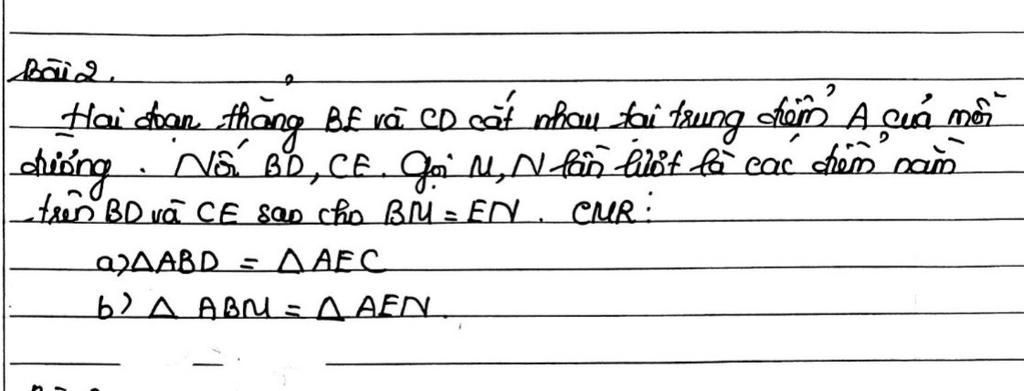 Bài 2.
Hai đoạn thẳng BE và CD cắt nhau tại trung điểm A của mỗi
đường. Nối BD, CE. Gọi M, N lần lượt là các điểm nằm
trên BD và CE sao cho BM = EN. CMR:
a) △ABD = △AEC
b) △ ABM = △AEN.